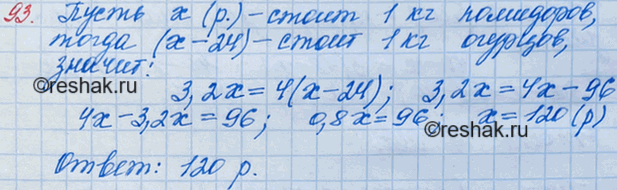 93. Пусть x (р.) - стоит 1 кг помидоров,
тогда (x-24) - стоит 1 кг огурцов,
значит:
3,2x = 4(x-24); 3,2x = 4x - 96
4x - 3,2x = 96; 0,8x = 96; x = 120 (р)
Ответ: 120 р.